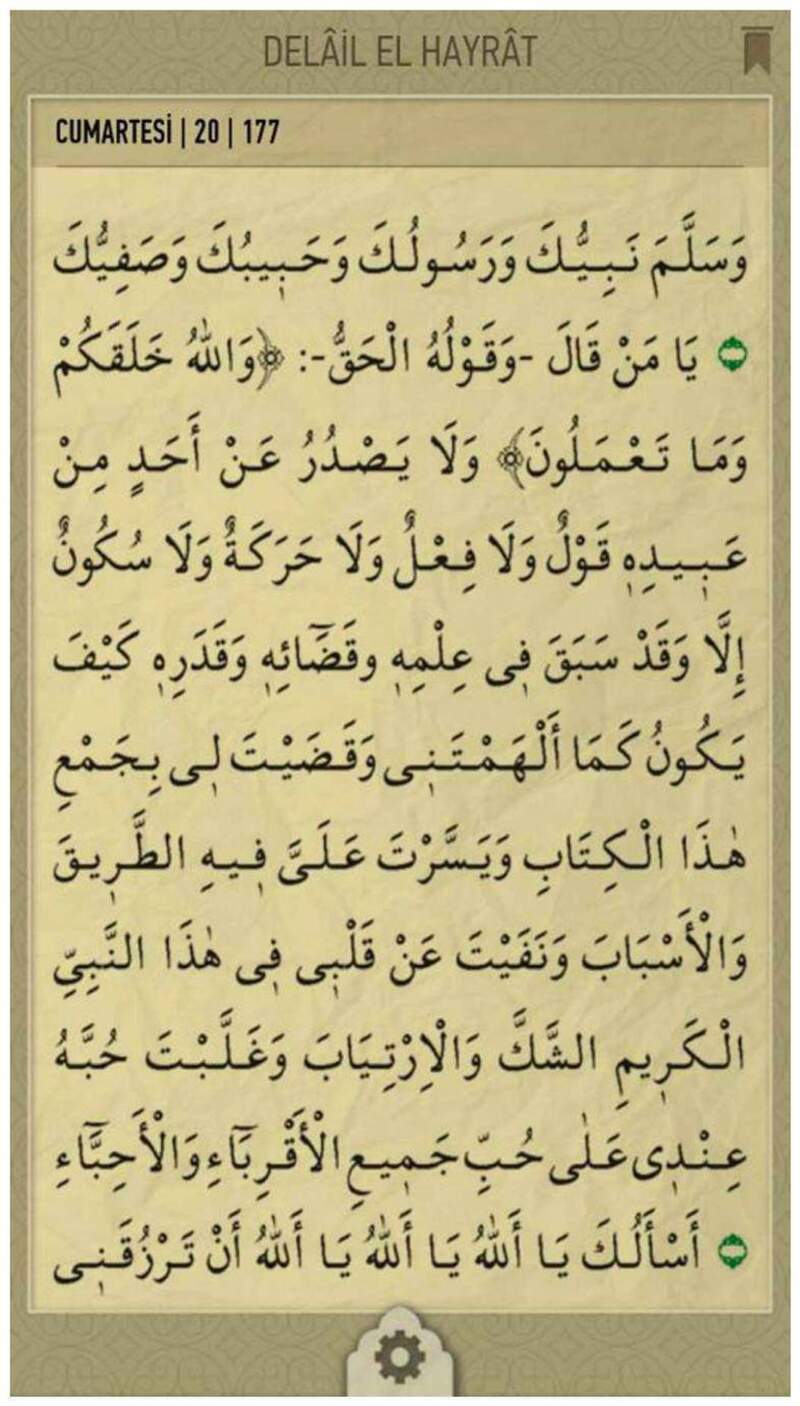 DELÂİL EL HAYRÂT
CUMARTESİ | 20 | 177
وَسَلَّمَ نَبِيُّكَ وَرَسُولُكَ وَحَبِيبُكَ وَصَفِيُّكَ
يَا مَنْ قَالَ -وَقَوْلُهُ الْحَقُّ-: ﴿وَاللّٰهُ خَلَقَكُمْ
وَمَا تَعْمَلُونَ﴾ وَلَا يَصْدُرُ عَنْ أَحَدٍ مِنْ
عَبِيدِهٖ قَوْلٌ وَلَا فِعْلٌ وَلَا حَرَكَةٌ وَلَا سُكُونٌ
إِلَّا وَقَدْ سَبَقَ فِى عِلْمِهٖ وقَضَٓائِهٖ وَقَدَرِهٖ كَيْفَ
يَكُونُ كَمَا أَلْهَمْتَنِى وَقَضَيْتَ لِى بِجَمْعِ
هٰذَا الْكِتَابِ وَيَسَّرْتَ عَلَىَّ فِيهِ الطَّرِيقَ
وَالْأَسْبَابَ وَنَفَيْتَ عَنْ قَلْبِى فِى هٰذَا النَّبِيِّ
الْكَرِيمِ الشَّكَّ وَالْاِرْتِيَابَ وَغَلَّبْتَ حُبَّهُ
عِنْدِى عَلٰى حُبِّ جَمِيعِ الْأَقْرِبَٓاءِ وَالْأَحِبَّٓاءِ
أَسْأَلُكَ يَا أَللّٰهُ يَا أَللّٰهُ يَا أَللّٰهُ أَنْ تَرْزُقَنِى